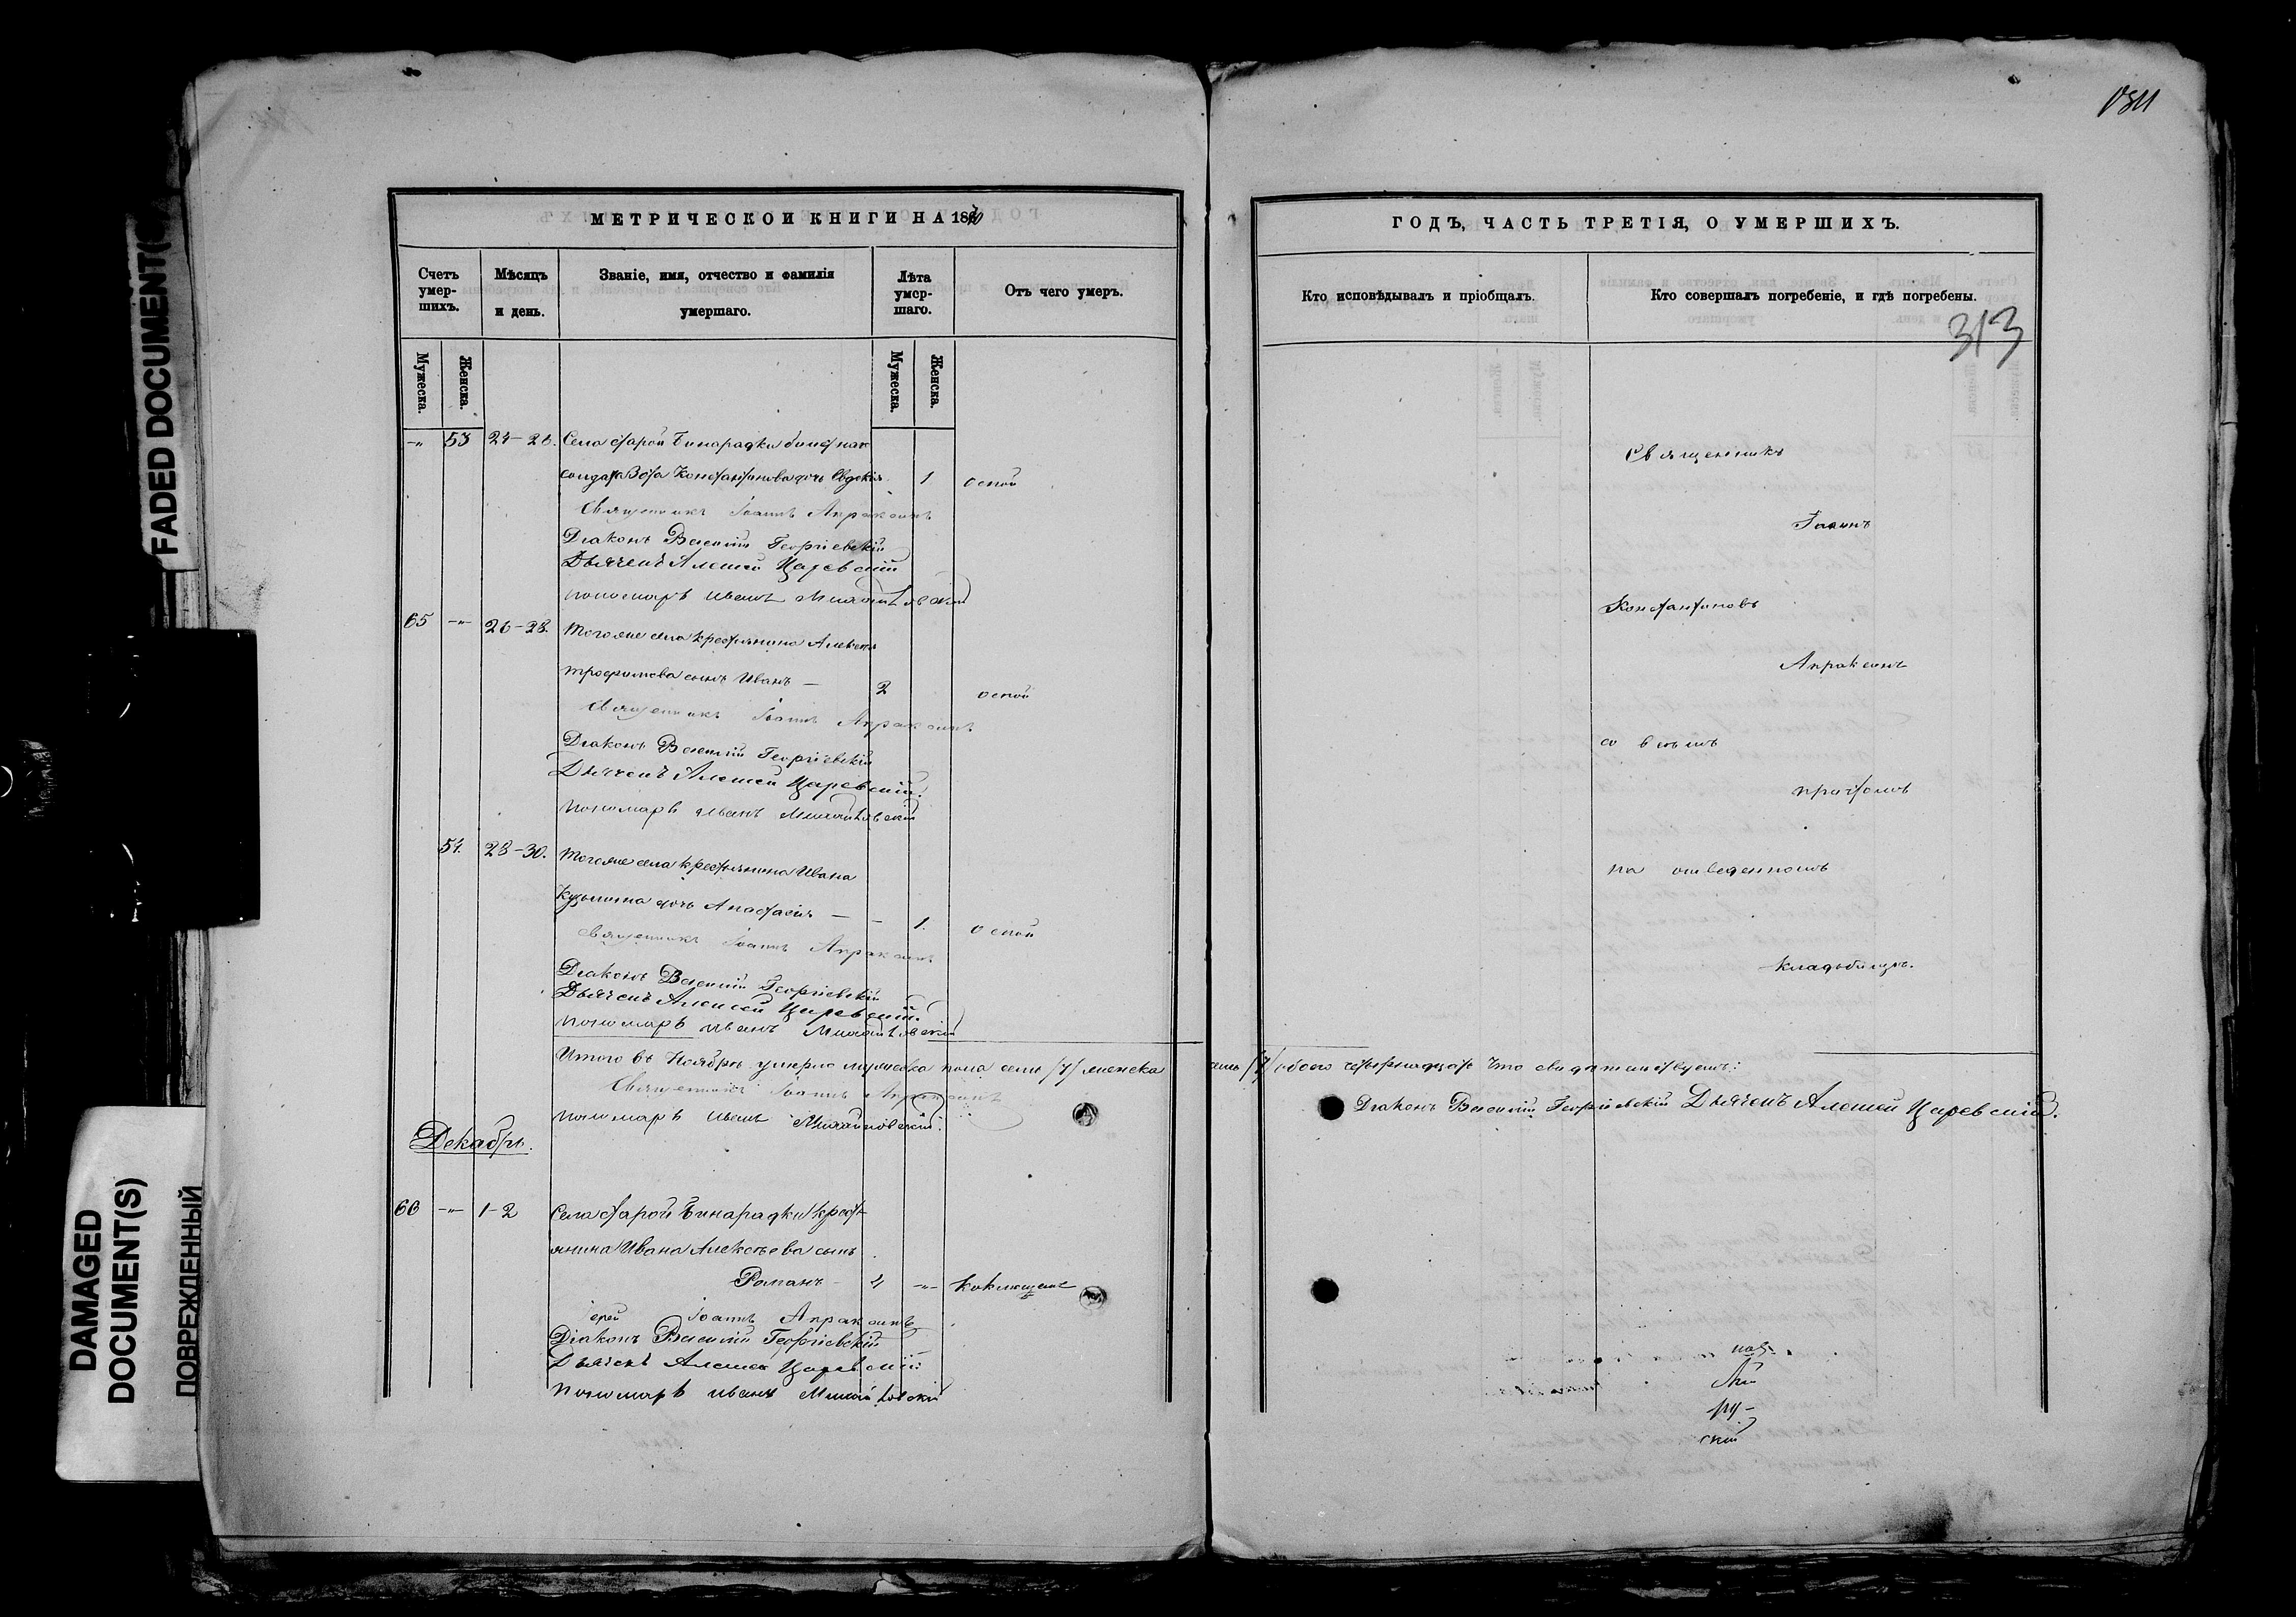 FADED DOCUMENT(
DAMAGED
DOCUMENT(S)
ПОВРЕЖДЕННЫЙ
МЕТРИЧЕСКОЙ КНИГИ НА 1870
Счетъ умер-шихъ.
Мѣсяцъ и день.
Званіе, имя, отчество и фамилія умершаго.
Лѣта умер-шаго.
Отъ чего умеръ.
Мужеска.
Женска.
Мужеска.
Женска.
-"- 53 24-26. Села Старой Бинарадки
солдата Константинова дочь Евдокія 1 оспой
Священникъ Іоаннъ Апраксинъ
Діаконъ Василій Георгіевскій
Дьячекъ Алексей Царевскій
пономарь Иванъ Михайловскій
65 -"- 26-28. Тогоже села крестьянина Алексея
Трофимова сынъ Иванъ — 2 оспой
Священникъ Іоаннъ Апраксинъ
Діаконъ Василій Георгіевскій
Дьячекъ Алексей Царевскій.
пономарь Иванъ Михайловскій
54. 28-30. Тогоже села крестьянина Ивана
Кузьмина дочь Анастасія — - 1. оспой
Священникъ Іоаннъ Апраксинъ
Діаконъ Василій Георгіевскій
Дьячекъ Алексей Царевскій.
пономарь Иванъ Михайловскій
Итого въ Ноябрѣ умерло мужеска пола семь /7/ женска
Священникъ Іоаннъ Апраксинъ
пономарь Иванъ Михайловскій.
Декабрь.
66 -"- 1-2 Села Старой Бинарадки крест-
янина Ивана Алексѣева сынъ
Романъ - 4 -"-
Іерей Іоаннъ Апраксинъ
Діаконъ Василій Георгіевскій
Дьячекъ Алексей Царевскій
пономарь Иванъ Михайловскій
1311
ГОДЪ, ЧАСТЬ ТРЕТІЯ, О УМЕРШИХЪ.
Кто исповѣдывалъ и пріобщалъ.
Кто совершалъ погребеніе, и гдѣ погребены.
313
Священникъ
Іоаннъ
Константиновъ
Апраксинъ
со всѣмъ
причтомъ
на отведенномъ
кладбищѣ.
семь /7/ обоего четырнадцать что свидетельствуемъ:
Діаконъ Василій Георгіевскій Дьячекъ Алексей Царевскій.